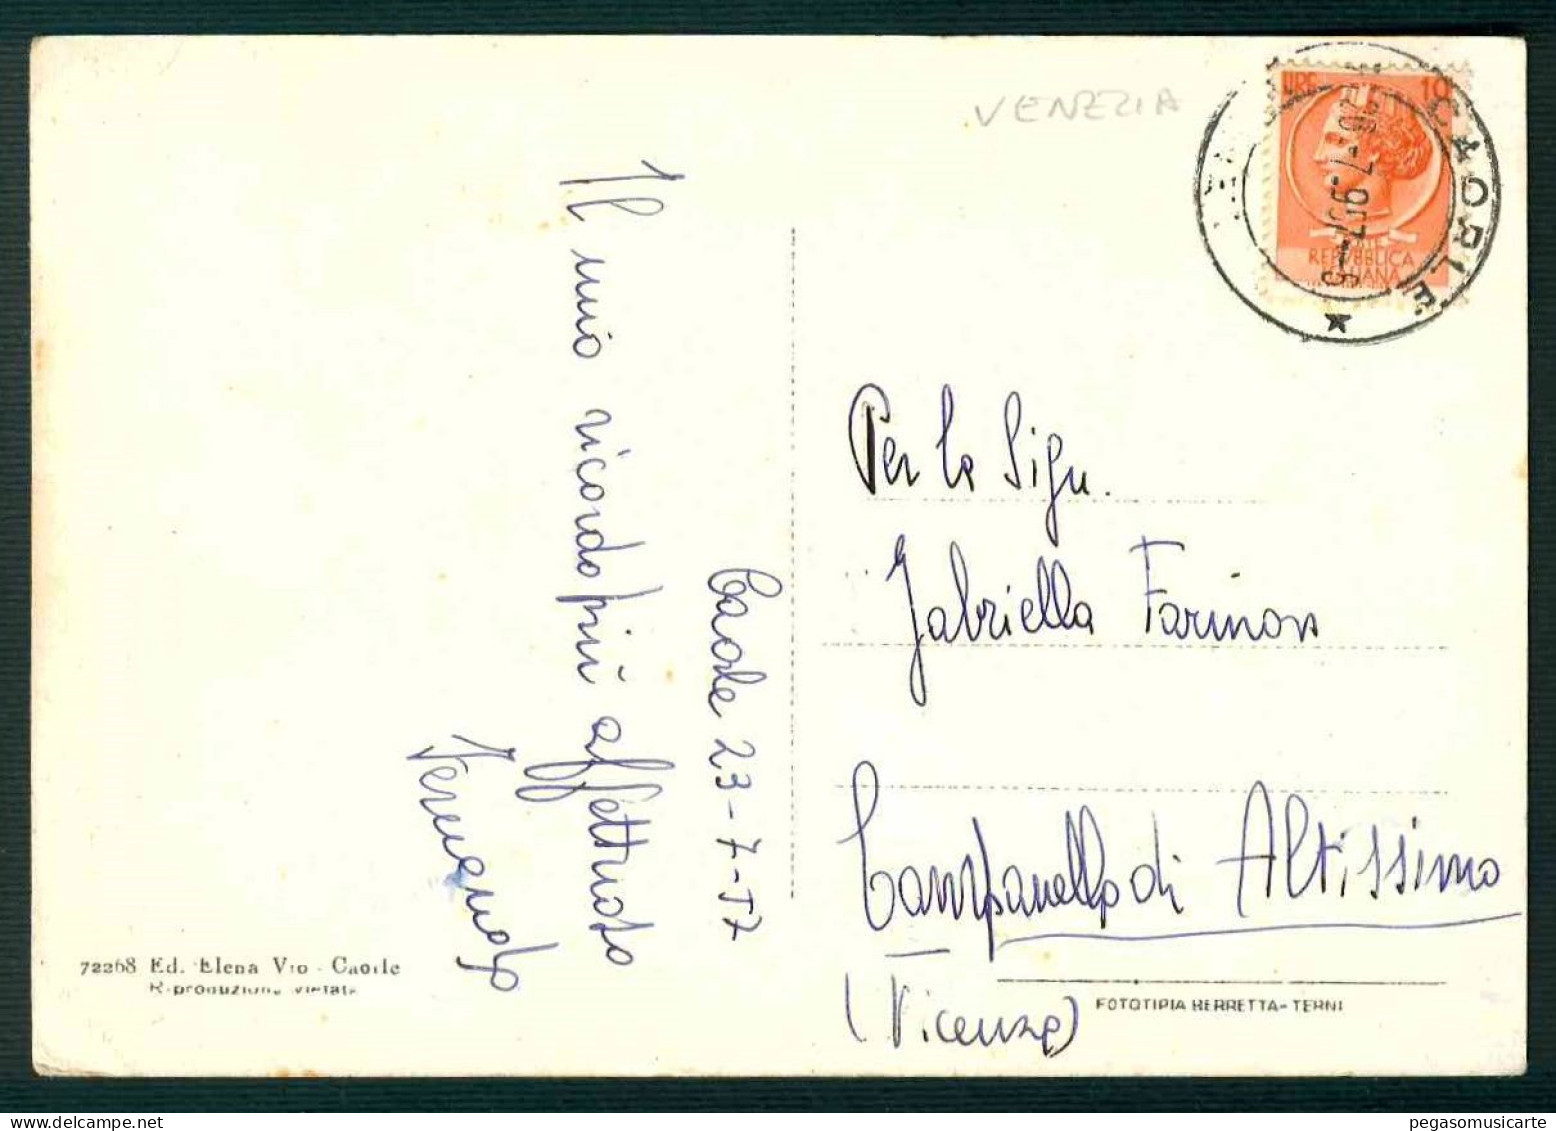 VENEZIA
LIRE 10
REPUBBLICA
ITALIANA
CAORLE
Il mio ricordo più affettuoso
Caorle 23-7-57
Per la Sign.
Gabriella
Campanella di Altissimo
(Vicenza)
72268 Ed. Elena Vio - Caorle
Riproduzione vietata
FOTOTIPIA BERRETTA - TERNI
pegasomusicarte